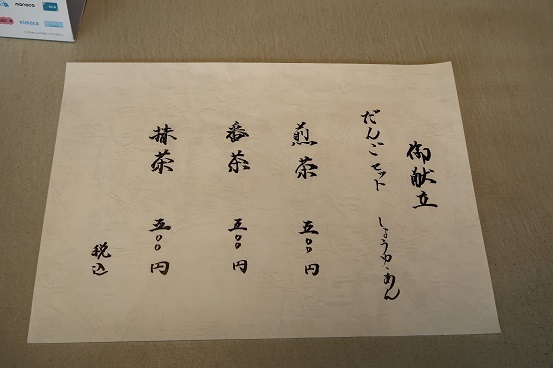 御献立
だんごセット しょうゆ・あん
煎茶 五〇〇円
番茶 五〇〇円
抹茶 五〇〇円
税込
nanaco
nimoca